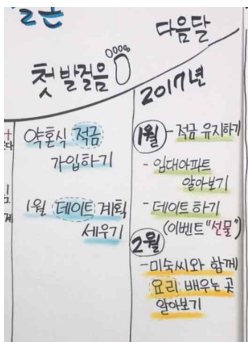 다음달
첫 발걸음
2017년
약혼식 적금
가입하기
1월 데이트 계획
세우기
1월 - 적금 유지하기
- 임대아파트
알아보기
- 데이트 하기
(이벤트 "선물")
2월
- 미숙씨와 함께
요리 배우는 곳
알아보기